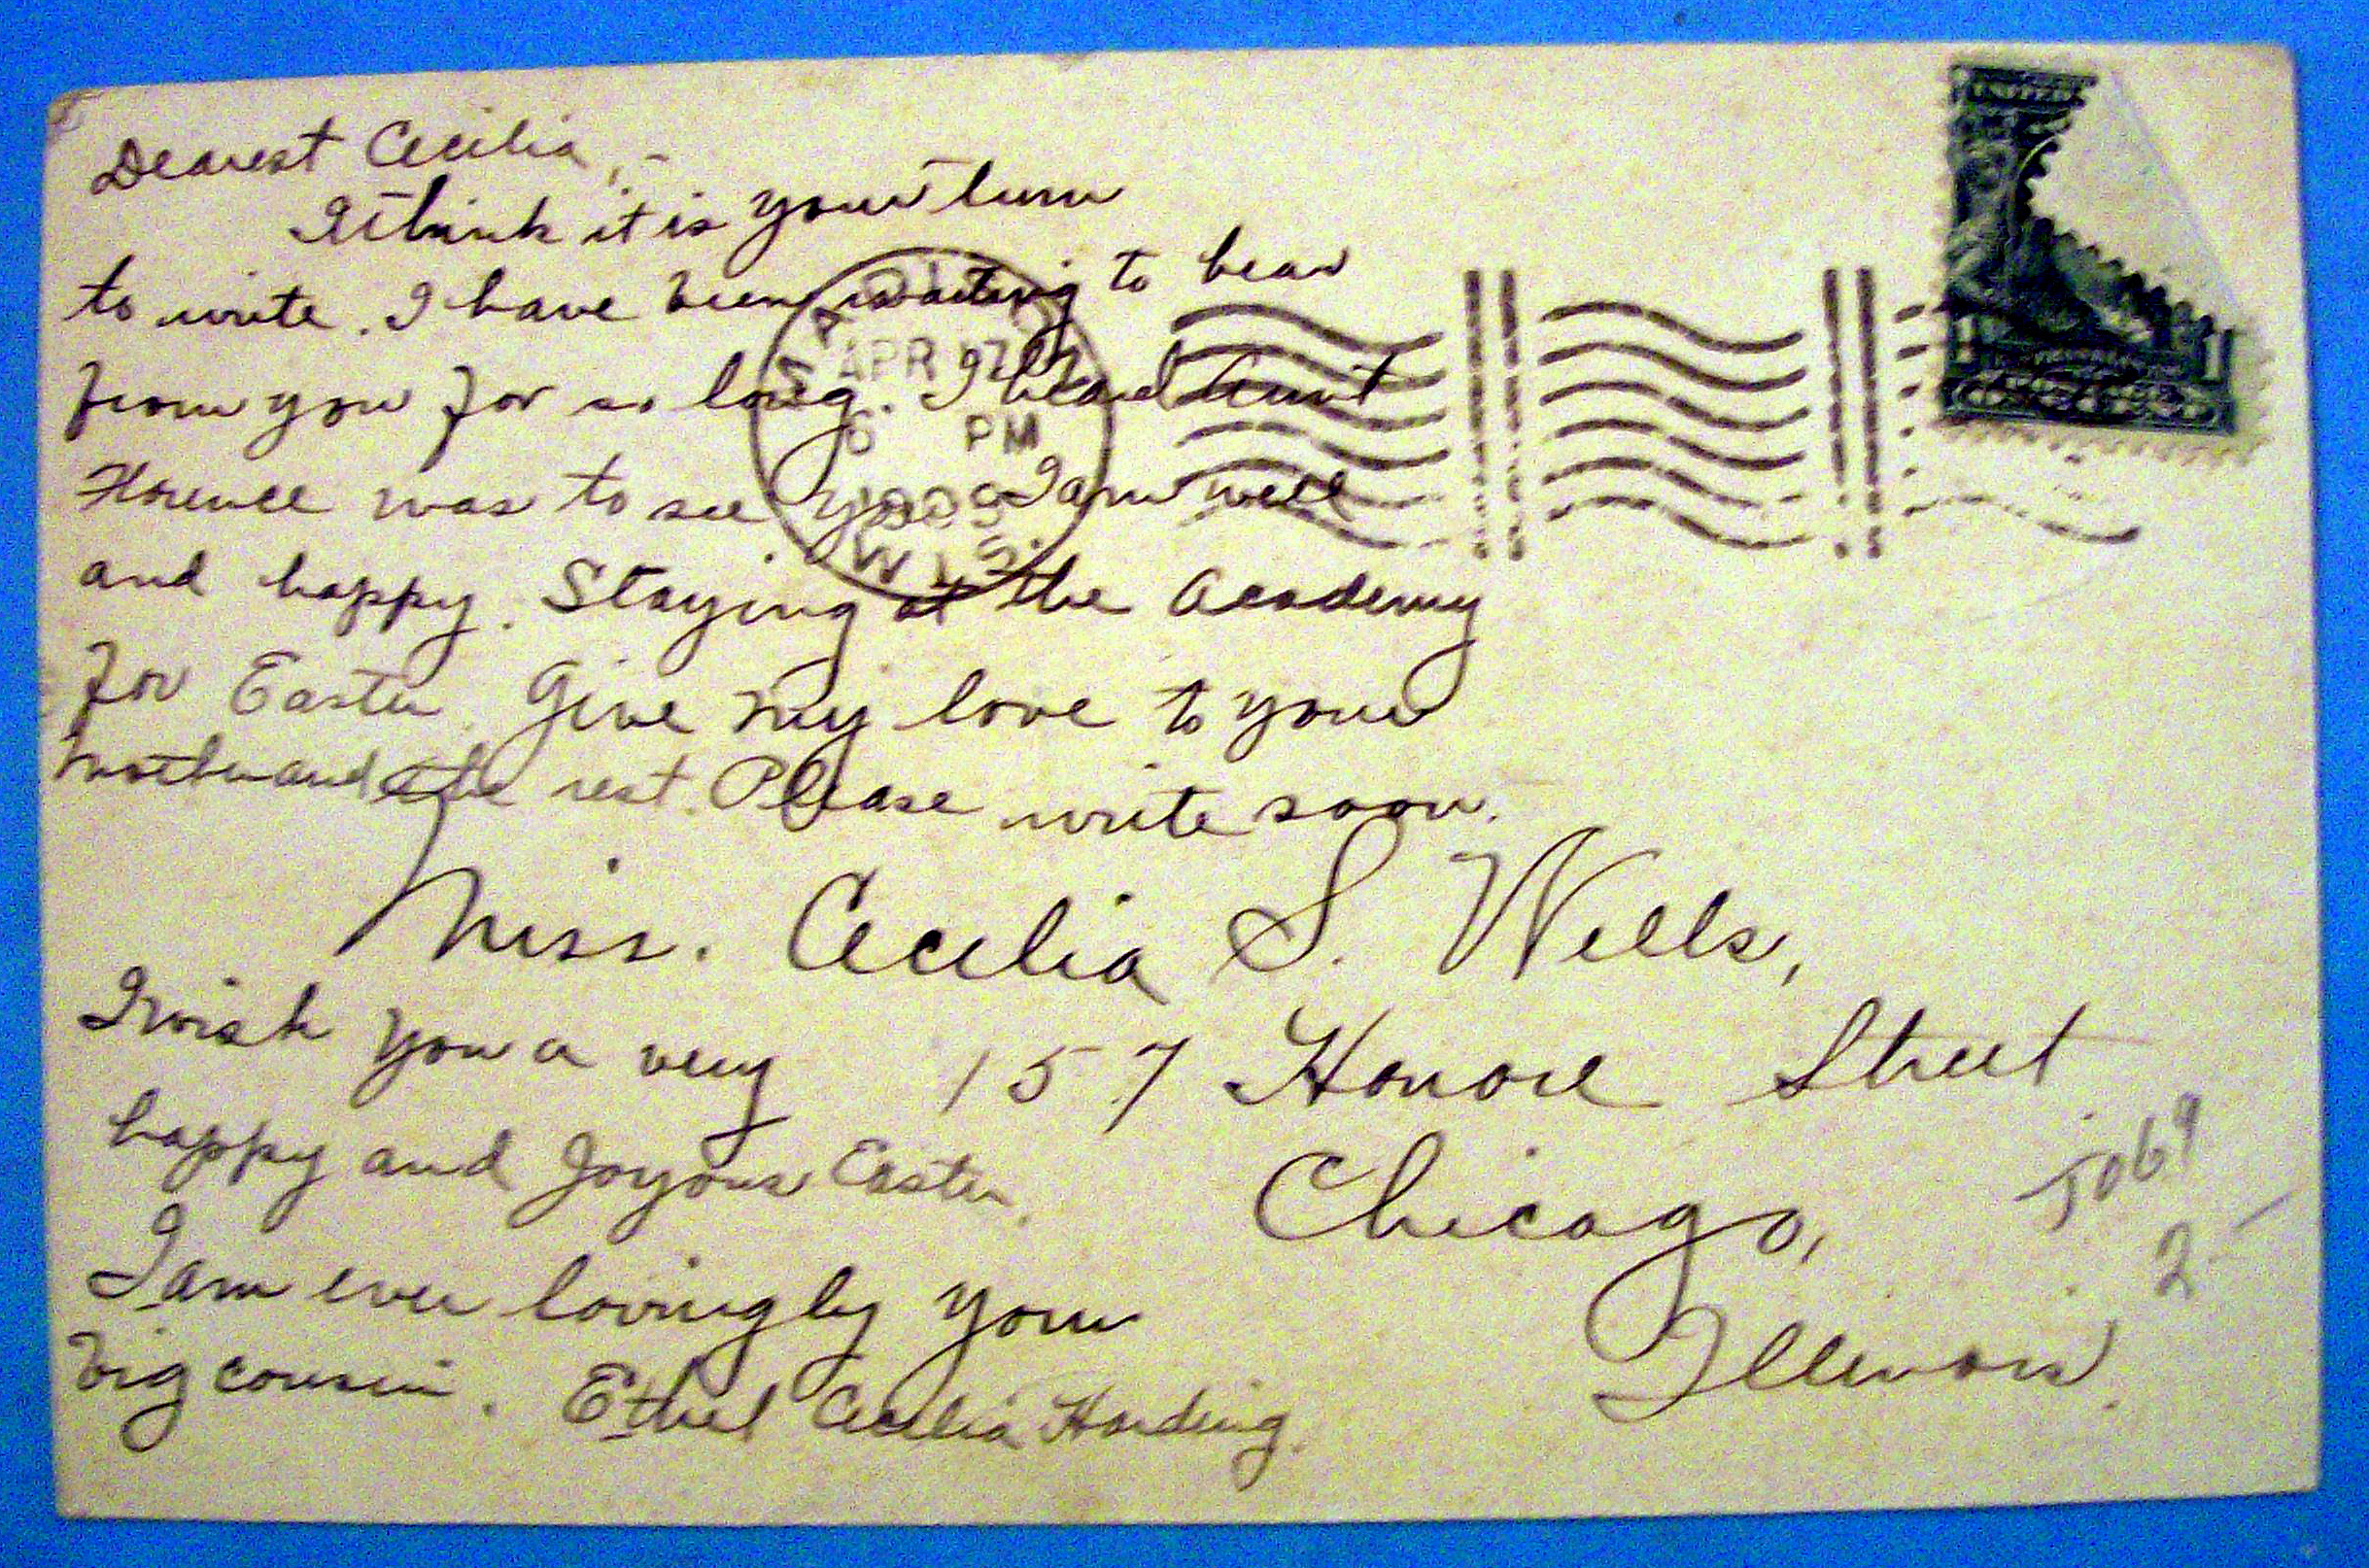 Dearest Cecilia,-
I think it is your turn
to write. I have been waiting to hear
from you for so long. I heard Aunt
Florence was to see you. I am well
and happy. Staying at the Academy
for Easter. Give my love to your
mother and the rest. Please write soon.
Miss. Cecilia S. Wells,
157 Honore Street
Chicago,
Illinois.
I wish you a very
happy and Joyous Easter.
I am ever lovingly your
big cousin. Ethel Cecilia Harding.
APR
PM
WIS.
5069
2-